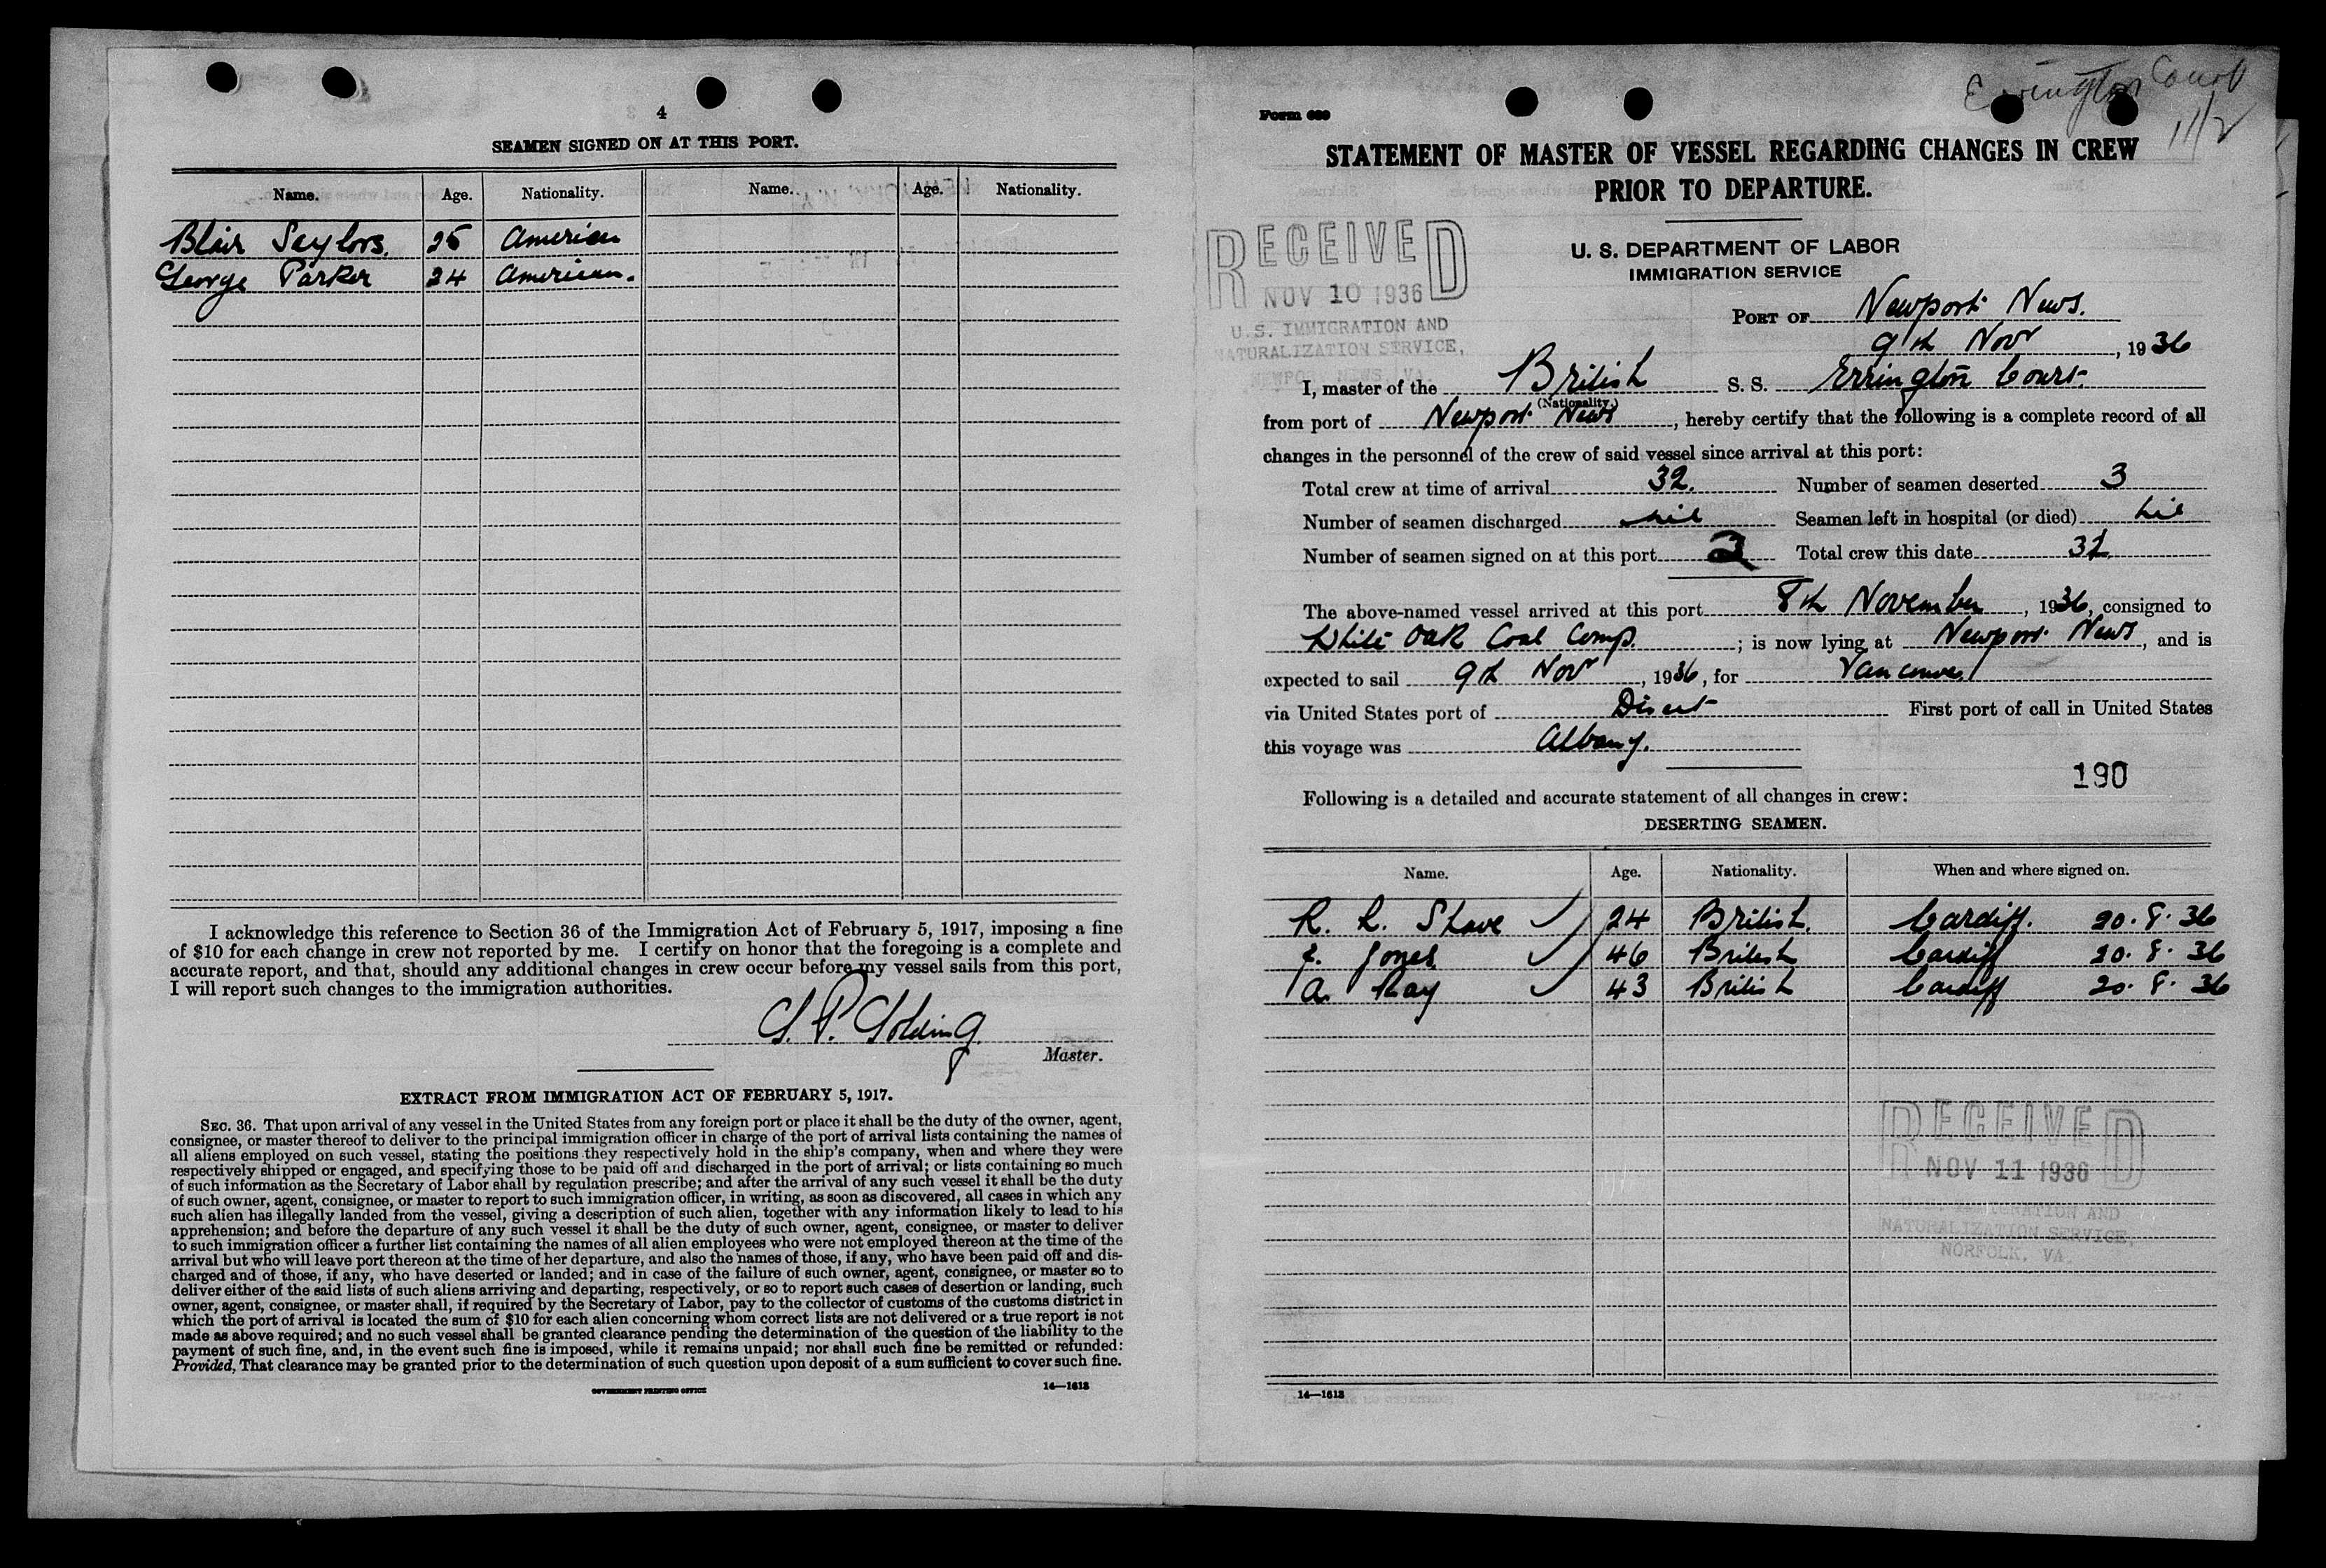 4
SEAMEN SIGNED ON AT THIS PORT.
Name. Age. Nationality. Name. Age. Nationality.
Blair Saylors. 25 American
George Parker 24 American.
I acknowledge this reference to Section 36 of the Immigration Act of February 5, 1917, imposing a fine
of $10 for each change in crew not reported by me. I certify on honor that the foregoing is a complete and
accurate report, and that, should any additional changes in crew occur before my vessel sails from this port,
I will report such changes to the immigration authorities.
G. P. Golding
Master.
EXTRACT FROM IMMIGRATION ACT OF FEBRUARY 5, 1917.
SEC. 36. That upon arrival of any vessel in the United States from any foreign port or place it shall be the duty of the owner, agent,
consignee, or master thereof to deliver to the principal immigration officer in charge of the port of arrival lists containing the names of
all aliens employed on such vessel, stating the positions they respectively hold in the ship's company, when and where they were
respectively shipped or engaged, and specifying those to be paid off and discharged in the port of arrival; or lists containing so much
of such information as the Secretary of Labor shall by regulation prescribe; and after the arrival of any such vessel it shall be the duty
of such owner, agent, consignee, or master to report to such immigration officer, in writing, as soon as discovered, all cases in which any
such alien has illegally landed from the vessel, giving a description of such alien, together with any information likely to lead to his
apprehension; and before the departure of any such vessel it shall be the duty of such owner, agent, consignee, or master to deliver
to such immigration officer a further list containing the names of all alien employees who were not employed thereon at the time of the
arrival but who will leave port thereon at the time of her departure, and also the names of those, if any, who have been paid off and dis-
charged and of those, if any, who have deserted or landed; and in case of the failure of such owner, agent, consignee, or master so to
deliver either of the said lists of such aliens arriving and departing, respectively, or so to report such cases of desertion or landing, such
owner, agent, consignee, or master shall, if required by the Secretary of Labor, pay to the collector of customs of the customs district in
which the port of arrival is located the sum of $10 for each alien concerning whom correct lists are not delivered or a true report is not
made as above required; and no such vessel shall be granted clearance pending the determination of the question of the liability to the
payment of such fine, and, in the event such fine is imposed, while it remains unpaid; nor shall such fine be remitted or refunded:
Provided, That clearance may be granted prior to the determination of such question upon deposit of a sum sufficient to cover such fine.
GOVERNMENT PRINTING OFFICE 14—1613
Errington Court
11/2
Form 689
STATEMENT OF MASTER OF VESSEL REGARDING CHANGES IN CREW
PRIOR TO DEPARTURE.
RECEIVED
NOV 10 1936
U.S. IMMIGRATION AND
NATURALIZATION SERVICE,
NEWPORT NEWS VA.
U. S. DEPARTMENT OF LABOR
IMMIGRATION SERVICE
PORT OF Newport News.
9th Nov, 1936
I, master of the British S. S. Errington Court.
(Nationality.)
from port of Newport News, hereby certify that the following is a complete record of all
changes in the personnel of the crew of said vessel since arrival at this port:
Total crew at time of arrival 32. Number of seamen deserted 3
Number of seamen discharged nil Seamen left in hospital (or died) nil
Number of seamen signed on at this port 2 Total crew this date 31
The above-named vessel arrived at this port 8th November, 1936, consigned to
White Oak Coal Comp.; is now lying at Newport News, and is
expected to sail 9th Nov, 1936, for Vancouver
via United States port of Direct First port of call in United States
this voyage was Albany.
190
Following is a detailed and accurate statement of all changes in crew:
DESERTING SEAMEN.
Name. Age. Nationality. When and where signed on.
R. R. Shave 24 British. Cardiff. 20.8.36
J. Jones 46 British Cardiff 20.8.36
A. Ray 43 British Cardiff 20.8.36
RECEIVED
NOV 11 1936
U.S. IMMIGRATION AND
NATURALIZATION SERVICE,
NORFOLK, VA.
14—1613